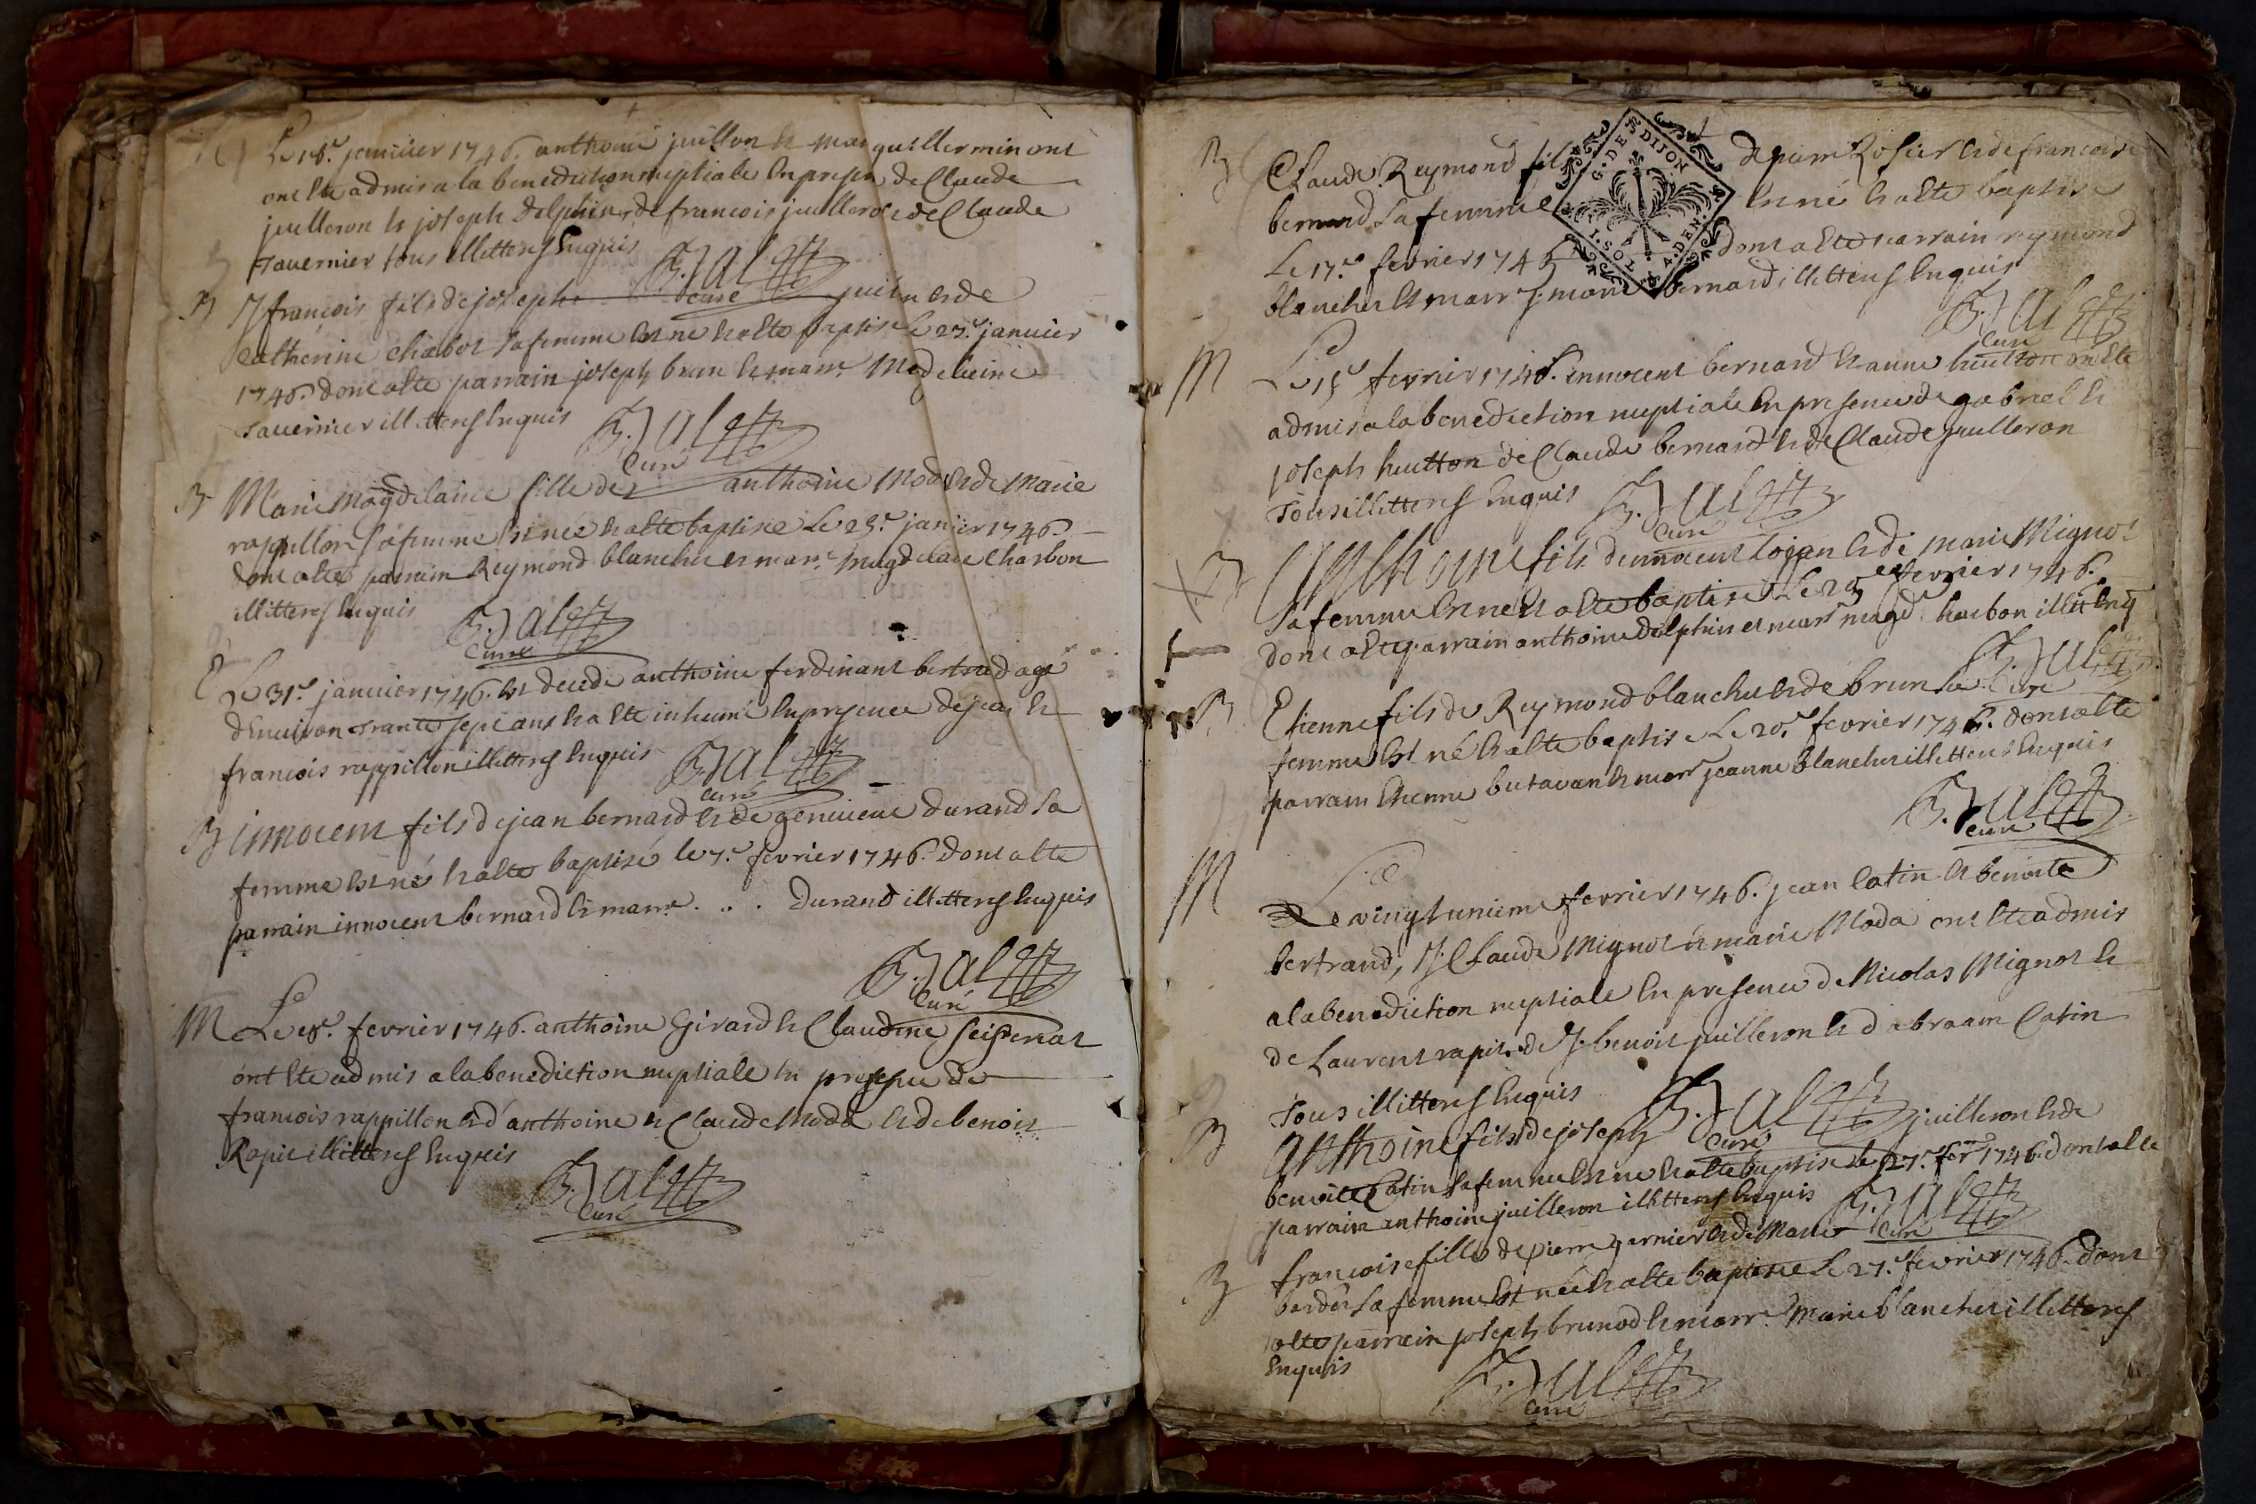 Le 18.e januier 1746. anthoine juillon & marguillermin ont
ont ete admis a la benediction nuptiale en presen de Claude
juilleron & joseph Delphin, de francois juilleron & de Claude
Tauernier tous illitterés enquis
G. Jal
curé
B J françois fils de joseph juilln & de
Catherine chabot sa femme est ne & a ete baptise Le 27.e januier
1746. dont a ete parrain joseph brun & marr Madeleine
Tauernier illitterés enquis
G. Jal
Curé
B Marie Magdelaine fille de anthoine Moda & de Marie
rappillon sa femme est née & a ete baptisee Le 28.e janier 1746.
dont a ete parrain Reymond blanchet et marr.e Magdelaine Charbon
illitterés enquis
G. Jal
Curé
E Le 31.e januier 1746. est decede anthoine ferdinant bertrad agé
d'enuiron trante sept ans & a ete inhumé en presence de jean &
francois rappillon illitterés enquis
G. Jal
Curé
B innocent fils de jean bernard & de genuieue durand sa
femme est né & a ete baptisé le 7.e feurier 1746. dont a ete
parrain innocent bernard & marr . . . durand illitterés enquis
G. Jal
Curé
M Le 8.e feurier 1746. anthoine Girard & Claudine
ont ete admis a la benediction nuptiale en presence de
francois rappillon & d'anthoine & Claude Moda & de benoit
Rapit illitterés enquis
G. Jal
Curé
B Claude Reymond fils de pierre Rosier & de francoise
G. DE DIJON
bernard sa femme est né & a ete baptise
Le 17.e feurier 1746 dont a ete parrain reymond
blanchet & marr J. marie bernard illitterés enquis
G. Jal
Curé
M Le 15.e feurier 1746. innocent bernard & anne hutton ont ete
admis a la benediction nuptiale en presence de gabriel &
joseph hutton de Claude bernard & de Claude juilleron
Tous illitterés enquis
G. Jal
Curé
B Anthoine fils d'innocent Lojan & de marie Mignot
sa femme est ne & a ete baptise Le feurier 1746.
dont a ete parrain anthoine delphin et marr magd. harbon illitt Enq
G. Jal
Curé
B Etienne fils de Reymond blanchet & de brun sa
femme est né & a ete baptise Le 20.e feurier 1746. dont a ete
parrain Etienne butauan & marr jeanne blanchet illitterés enquis
G. Jal
Curé
M Le vingt unieme feurier 1746. jean Catin & benoite
bertrand, J. Claude Mignot & marie Moda ont ete admis
a la benediction nuptiale en presence de Nicolas Mignot &
de Laurent rapit, de J. benoit juilleron & d'abraam Catin
Tous illitterés enquis
G. Jal
Curé
B anthoine fils de joseph juilleron & de
benoite Catin sa femme est ne & a ete baptise le 27.e fer 1746. dont a ete
parrain anthoine juilleron illitterés enquis
G. Jal
Curé
B francoise fille de pierre garnier & de Marie
bardet sa femme est née & a ete baptisee Le 27.e feurier 1746. dont
a ete parrain joseph brunod & marr. Marie blanchet illitterés
enquis
G. Jal
Curé